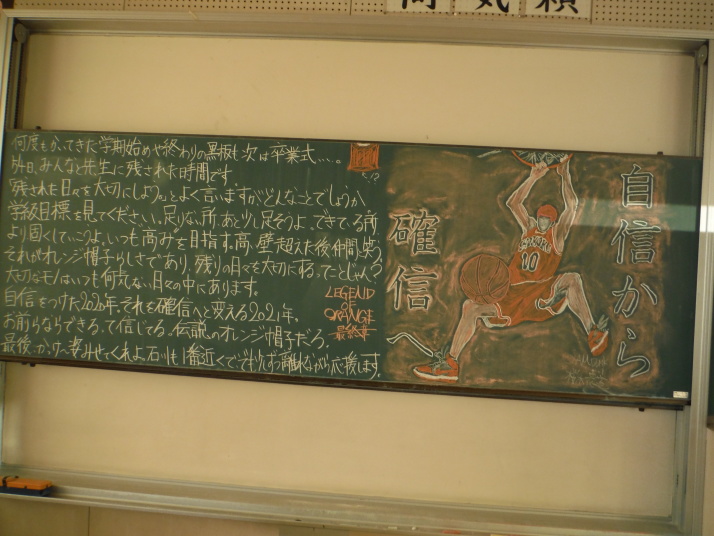 何度もかいてきた学期始めや終わりの黒板も次は卒業式…。
日、みんなと先生に残された時間です。
残された日々を大切にしようってよく言いますがどんなことでしょうか
学級目標を見てください。足りない所、あと少し足そうよ、できている所
より固くしていこうよ、いつも高みを目指す。高い壁超えた後仲間と笑う
それがオレンジ帽子らしさであり、残りの日々を大切にするってことじゃん?
大切なモノはいつも何気ない日々の中にあります。
自信をつけた2020年。それを確信へと変える2021年。
お前らならできるって信じてる。伝説のオレンジ帽子だろ。
最後、かけ 姿みせてくれよ 石川も1番近くで 離れながら応援します。
LEGEND
OF
ORANGE
最終章
SHOHOKU
10
自信から
確信へ